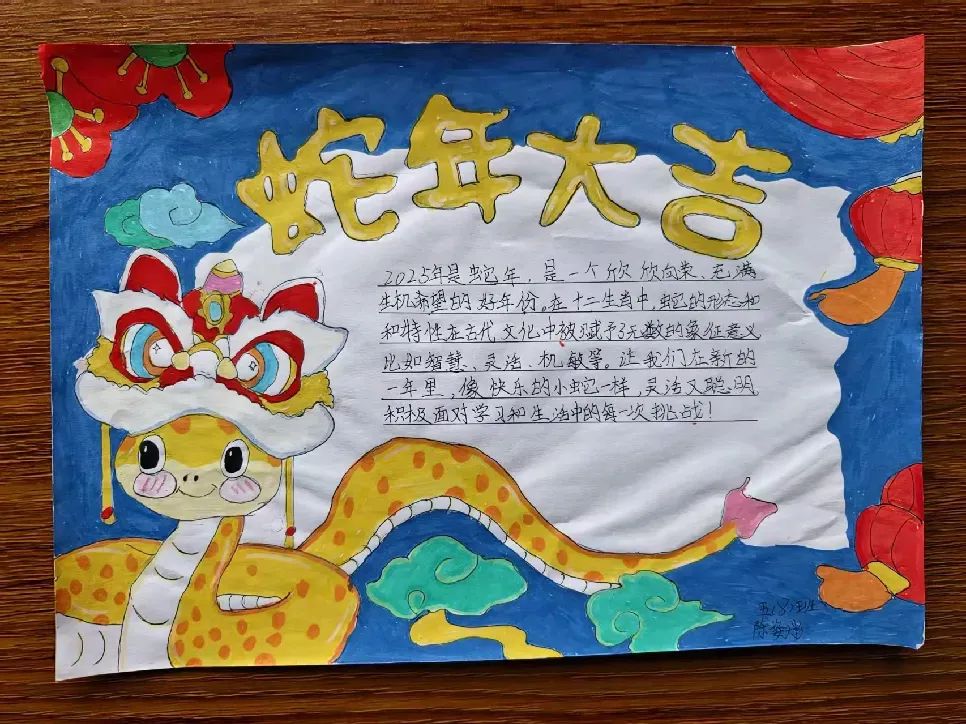 蛇年大吉
2025年是蛇年，是一个欣欣向荣、充满
生机希望的好年份。在十二生肖中，蛇的形态和
和特性在古代文化中被赋予了无数的象征意义
比如智慧、灵活、机敏等。让我们在新的
一年里，像快乐的小蛇一样，灵活又聪明
积极面对学习和生活中的每一次挑战！
五(8)班
陈